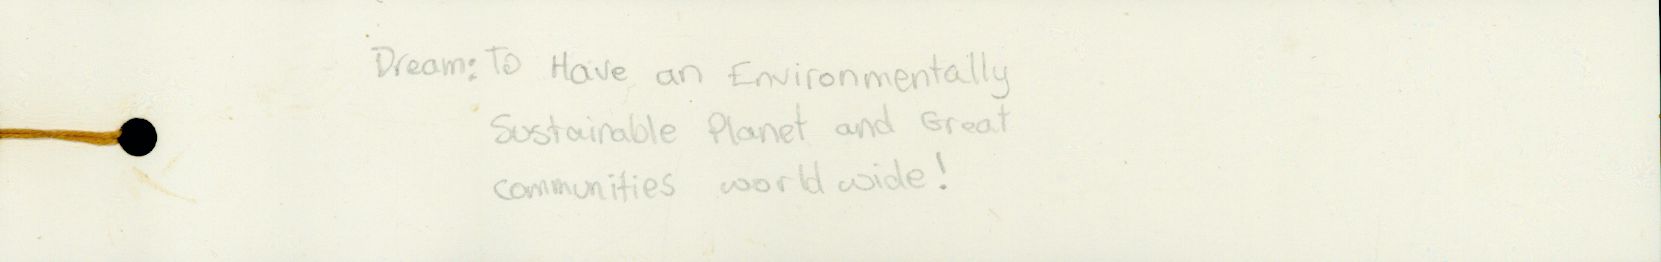 Dream: To Have an Environmentally
Sustainable Planet and Great
communities world wide!